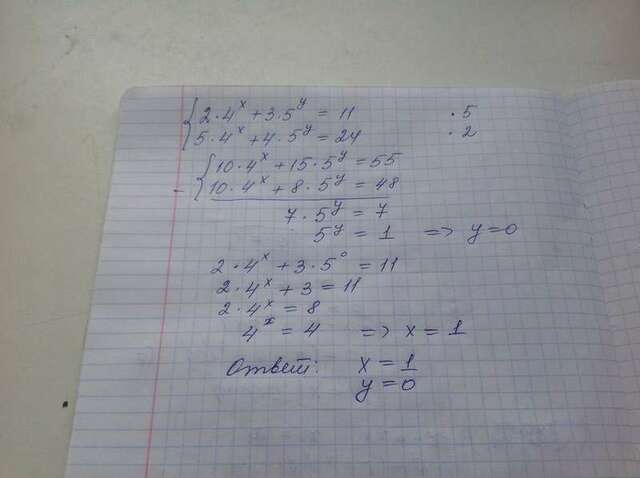 2·4^x + 3·5^y = 11 ·5
5·4^x + 4·5^y = 24 ·2
10·4^x + 15·5^y = 55
- 10·4^x + 8·5^y = 48
7·5^y = 7
5^y = 1 => y=0
2·4^x + 3·5^0 = 11
2·4^x + 3 = 11
2·4^x = 8
4^x = 4 => x = 1
Ответ: x = 1
y = 0